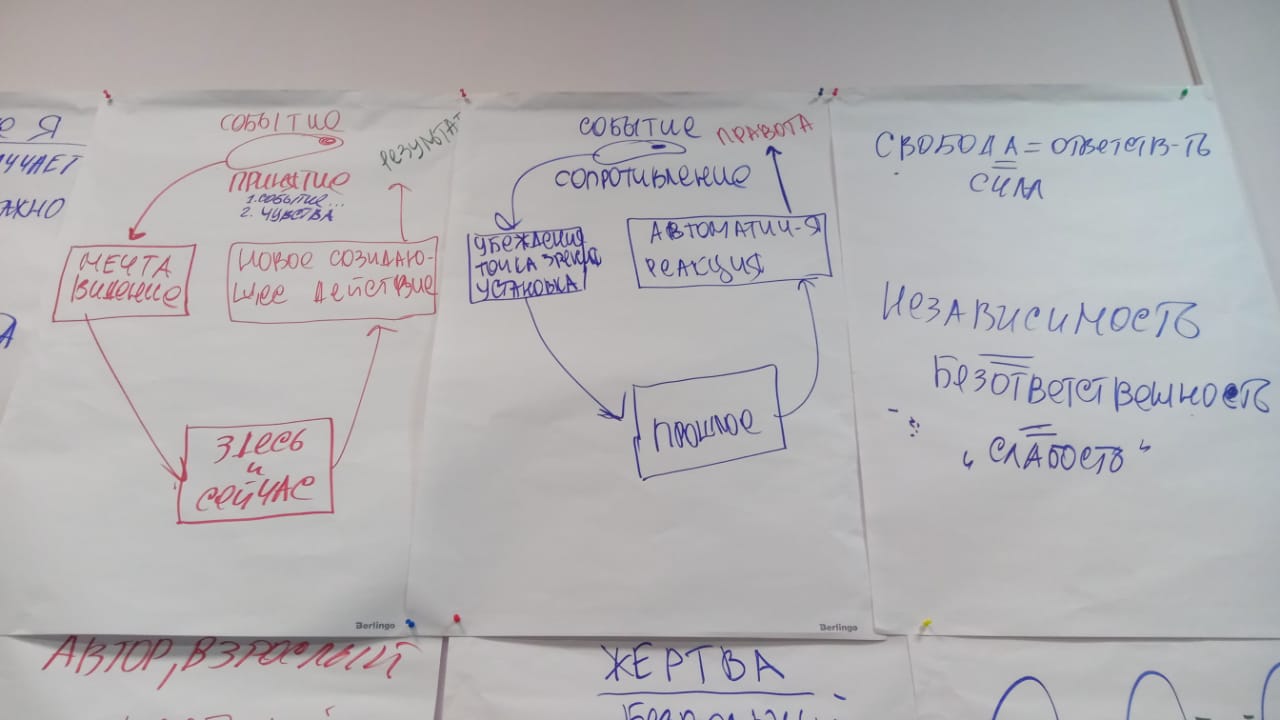 Е Я
УЧАЕТ
АЖНО
СОБЫТИЕ
ПРИНЯТИЕ
1. СОБЫТИЕ...
2. ЧУВСТВА
РЕЗУЛЬТАТ
МЕЧТА
ВИДЕНИЕ
НОВОЕ СОЗИДАЮ-
ЩЕЕ ДЕЙСТВИЕ
ЗДЕСЬ
И
СЕЙЧАС
Berlingo
СОБЫТИЕ
СОПРОТИВЛЕНИЕ
ПРАВОТА
УБЕЖДЕНИЯ
ТОЧКА ЗРЕНИЯ
УСТАНОВКА
АВТОМАТИЧ-Я
РЕАКЦИЯ
ПРОШЛОЕ
Berlingo
СВОБОДА = ОТВЕТСТВ-ТЬ
=
СИЛА
НЕЗАВИСИМОСТЬ
=
БЕЗОТВЕТСТВЕННОСТЬ
=
"СЛАБОСТЬ"
АВТОР, ВЗРОСЛЫЙ
ЖЕРТВА